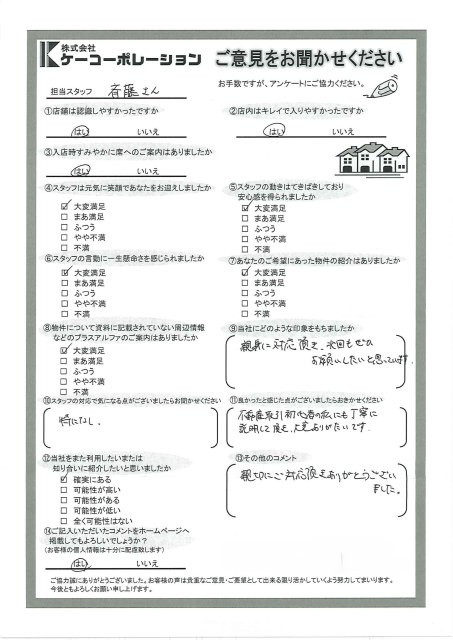 株式会社
ケーコーポレーション
ご意見をお聞かせください
担当スタッフ 斉藤さん
お手数ですが、アンケートにご協力ください。
①店舗は認識しやすかったですか
はい いいえ
②店内はキレイで入りやすかったですか
はい いいえ
③入店時すみやかに席へのご案内はありましたか
はい いいえ
④スタッフは元気に笑顔であなたをお迎えしましたか
☑ 大変満足
□ まあ満足
□ ふつう
□ やや不満
□ 不満
⑤スタッフの動きはてきぱきしており
安心感を得られましたか
☑ 大変満足
□ まあ満足
□ ふつう
□ やや不満
□ 不満
⑥スタッフの言動に一生懸命さを感じられましたか
☑ 大変満足
□ まあ満足
□ ふつう
□ やや不満
□ 不満
⑦あなたのご希望にあった物件の紹介はありましたか
☑ 大変満足
□ まあ満足
□ ふつう
□ やや不満
□ 不満
⑧物件について資料に記載されていない周辺情報
などのプラスアルファのご案内はありましたか
☑ 大変満足
□ まあ満足
□ ふつう
□ やや不満
□ 不満
⑨当社にどのような印象をもちましたか
親身に対応頂き、次回もぜひ
お願いしたいと思っています。
⑩スタッフの対応で気になる点がございましたらお聞かせください
特になし。
⑪良かったと感じた点がございましたらおきかせください
不動産取引初心者の私にも丁寧に
説明して頂き、大変ありがたいです。
⑫当社をまた利用したいまたは
知り合いに紹介したいと思いましたか
☑ 確実にある
□ 可能性が高い
□ 可能性がある
□ 可能性が低い
□ 全く可能性はない
⑬その他のコメント
親切にご対応頂きありがとうござい
ました。
⑭ご記入いただいたコメントをホームページへ
掲載してもよろしいでしょうか?
(お客様の個人情報は十分に配慮致します)
はい いいえ
ご協力誠にありがとうございました。お客様の声は貴重なご意見・ご要望として出来る限り活かしていくよう努力してまいります。
今後ともよろしくお願い申し上げます。